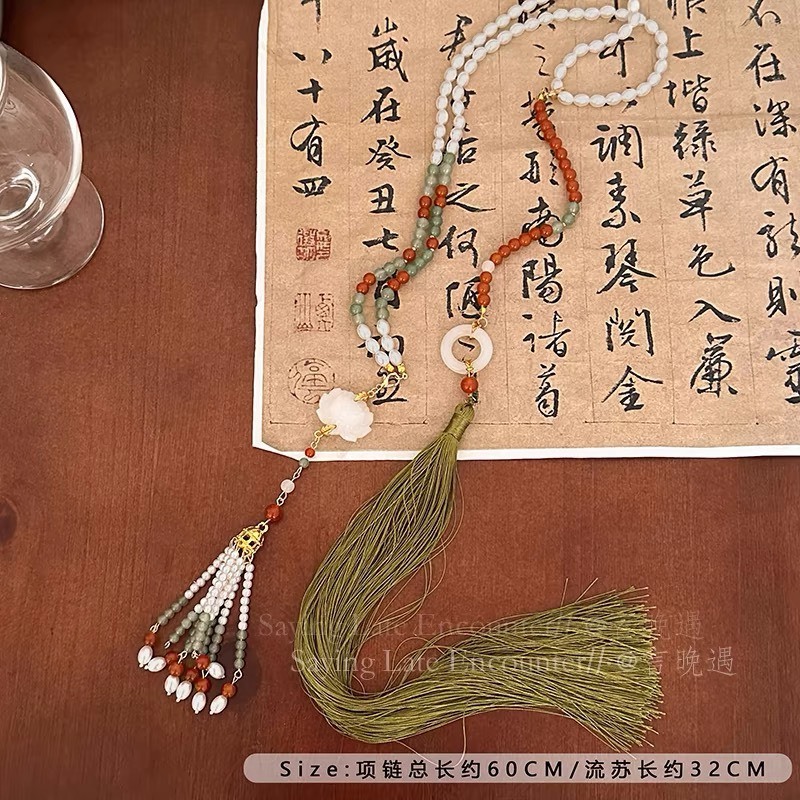 不在深有龍則靈
上堦緑草色入簾
調素琴閱金
之勞形南陽諸葛
君
之何陋
歲在癸丑七月
八十有四
Saying Late Encounter// @言晚遇
Saying Late Encounter// @言晚遇
Size:项链总长约60CM/流苏长约32CM